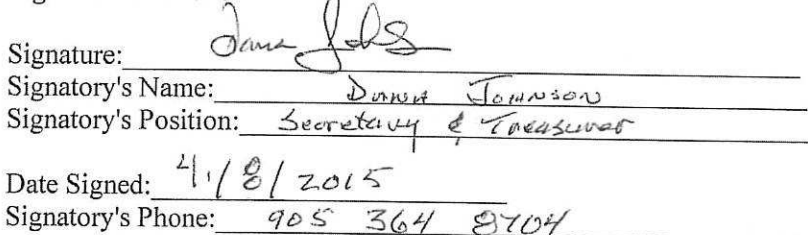 Signature:
Signatory's Name: Donna Johnson
Signatory's Position: Secretary & Treasurer
Date Signed: 4/8/2015
Signatory's Phone: 905 364 8704